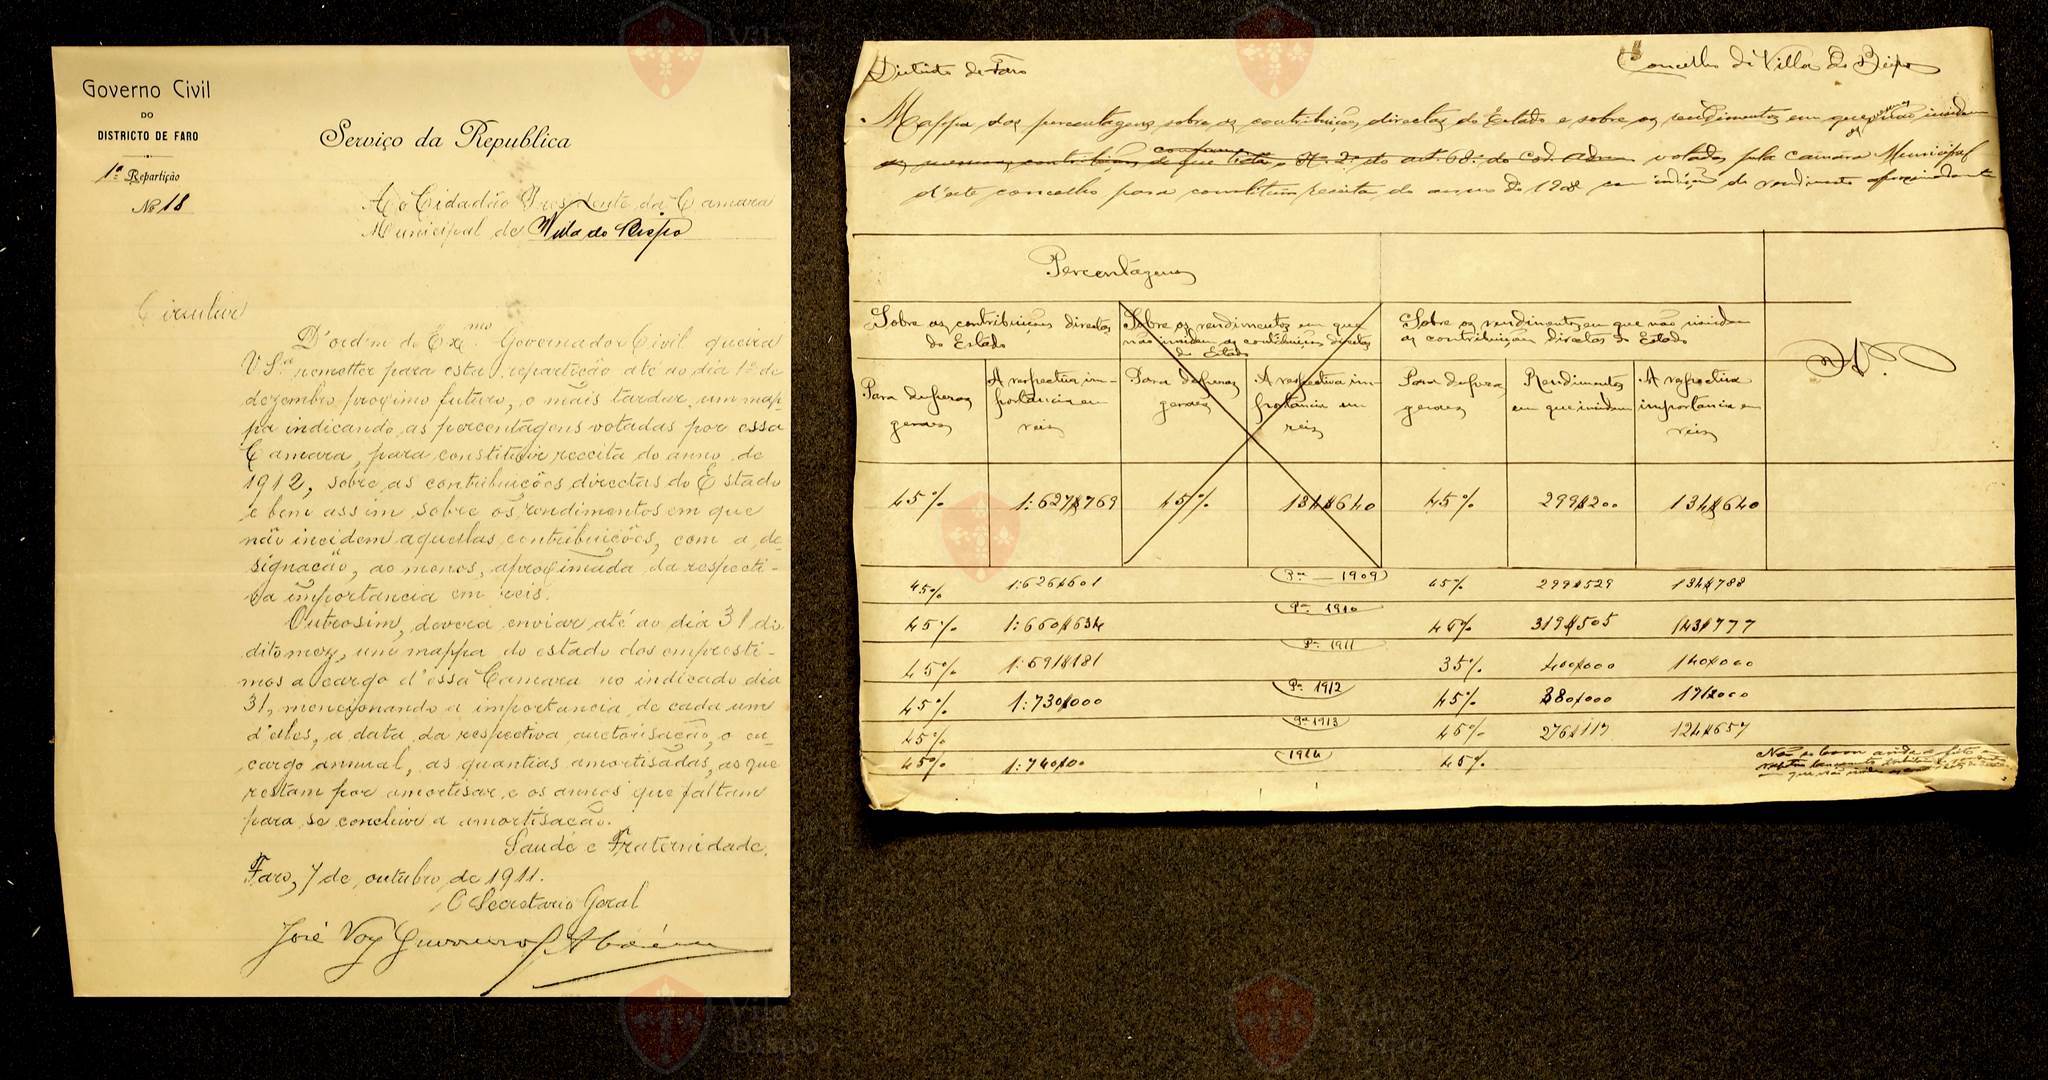 Governo Civil
DO
DISTRICTO DE FARO
1ª Repartição
Nº 18
Serviço da Republica
Ao Cidadão Presidente da Camara
Municipal de Villa do Bispo
Circular
D'ordem do Exmo. Governador Civil queira
V. Sª remetter para esta repartição até ao dia 1º de
dezembro proximo futuro, o mais tardar, um map-
pa indicando as percentagens votadas por essa
Camara, para constituir receita do anno de
1912, sobre as contribuições directas do Estado
e bem assim sobre os rendimentos em que
não incidem aquellas contribuições, com a de-
signação, ao menos, aproximada da respecti-
va importancia em reis.
Outrosim, deverá enviar até ao dia 31 do
dito mez, um mappa do estado dos empresti-
mos a cargo d'essa Camara no indicado dia
31, mencionando a importancia de cada um
d'elles, a data da respectiva auctorisação, o en-
cargo annual, as quantias amortisadas, as que
restam por amortisar e os annos que faltam
para se concluir a amortisação.
Saude e Fraternidade.
Faro, 7 de outubro de 1911.
O Secretario Geral
José Vaz Guerreiro
Districto de Faro
Concelho de Villa do Bispo
Mappa das percentagens sobre as contribuições directas do Estado e sobre os rendimentos em que não incidem
as mesmas contribuições de que trata o nº 2º do artº 68º do Cod. Adm. votadas pela camara Municipal
d'este concelho para constituir receita do anno de 1908 com indicação do rendimento aproximadamente
Percentagens
Sobre as contribuições directas do Estado
Sobre os rendimentos em que não incidem as contribuições directas do Estado
Sobre os rendimentos em que não incidem as contribuições directas do Estado
Para despezas geraes
A respectiva importancia em reis
Para despezas geraes
A respectiva importancia em reis
Para despezas geraes
Rendimentos em que incidem
A respectiva importancia em reis
45% 1:627$769 45% 134$640 45% 299$200 134$640
45% 1:626$601 Pª 1909 45% 299$529 134$788
45% 1:660$634 Pª 1910 45% 319$505 143$777
45% 1:691$181 Pª 1911 35% 400$000 140$000
45% 1:730$000 Pª 1912 45% 380$000 171$000
45% Pª 1913 45% 276$117 124$657
45% 1:740$00 1914 45%